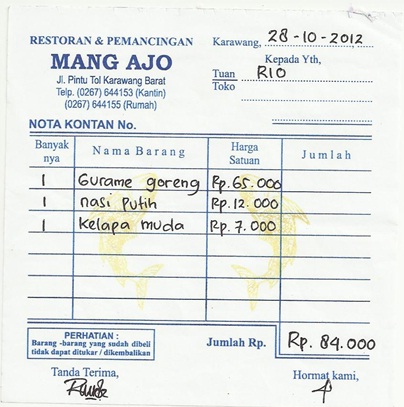 RESTORAN & PEMANCINGAN
MANG AJO
Jl. Pintu Tol Karawang Barat
Telp. (0267) 644153 (Kantin)
(0267) 644155 (Rumah)
Karawang, 28-10-2012
Kepada Yth,
Tuan RIO
Toko
NOTA KONTAN No.
Banyak nya Nama Barang Harga Satuan Jumlah
1 Gurame goreng Rp. 65.000
1 nasi putih Rp. 12.000
1 kelapa muda Rp. 7.000
PERHATIAN :
Barang -barang yang sudah dibeli
tidak dapat ditukar / dikembalikan
Jumlah Rp. Rp. 84.000
Tanda Terima, Hormat kami,